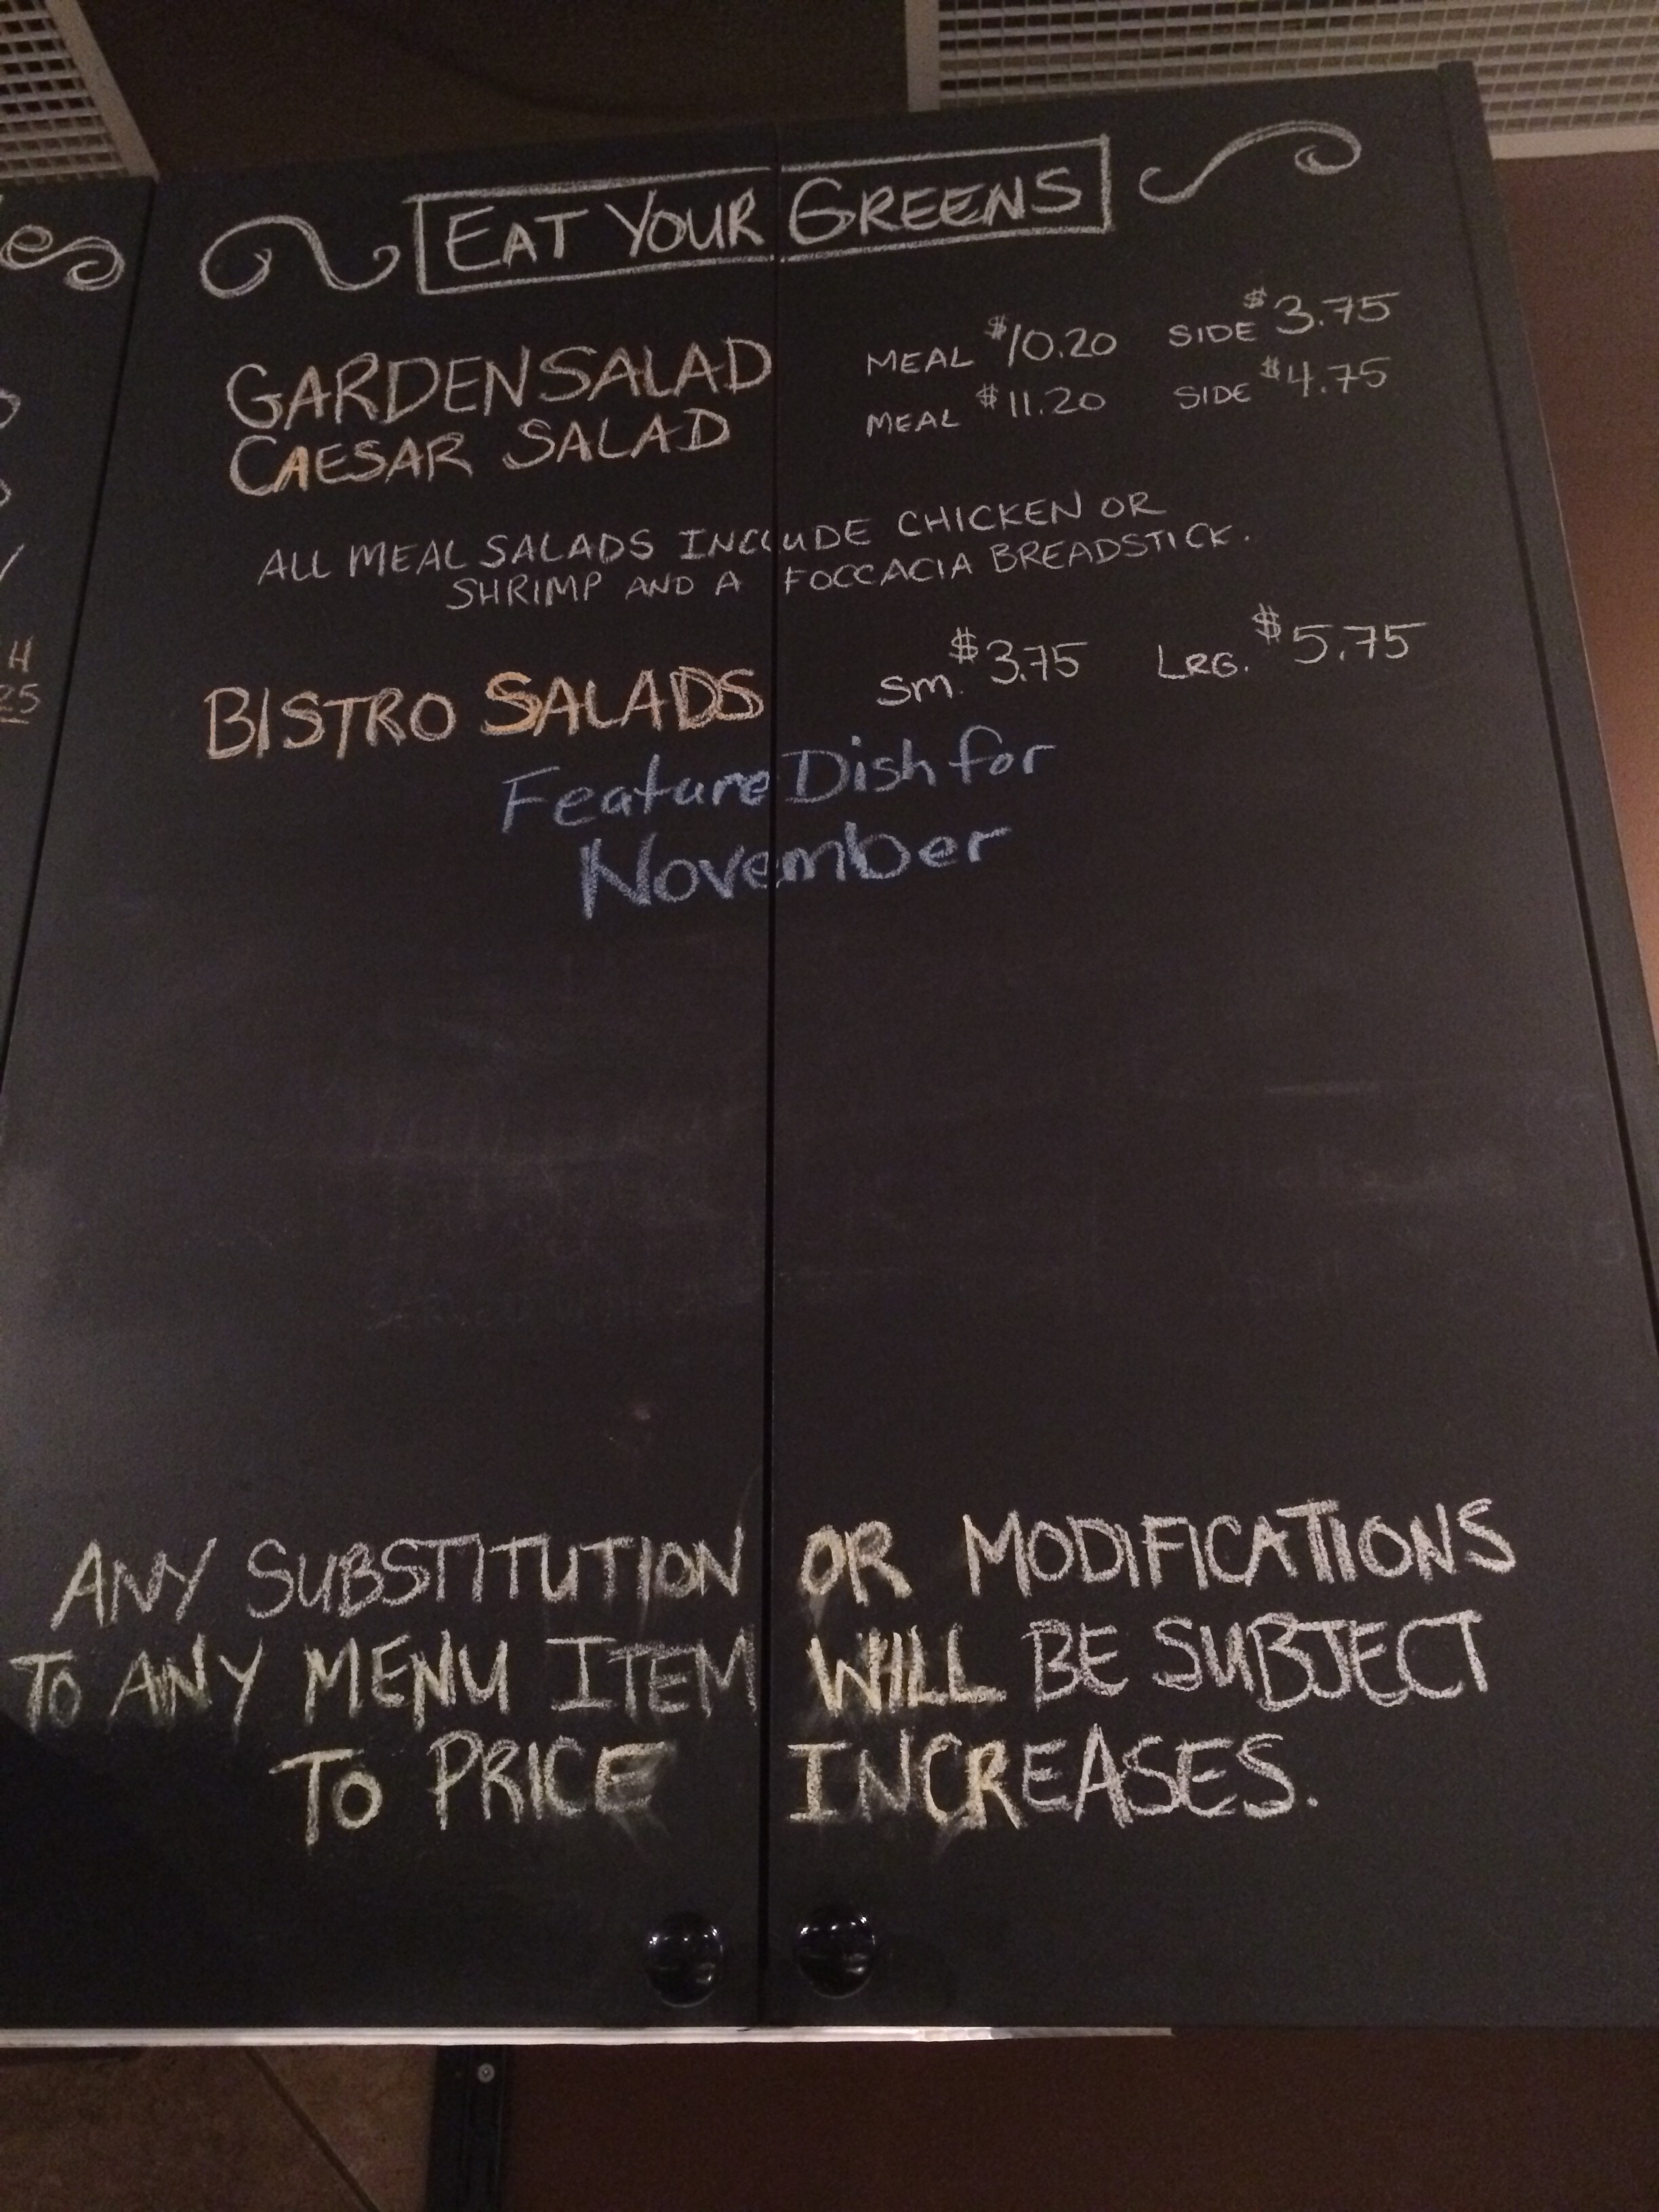 EAT YOUR GREENS
GARDEN SALAD MEAL $10.20 SIDE $3.75
CAESAR SALAD MEAL $11.20 SIDE $4.75
ALL MEAL SALADS INCLUDE CHICKEN OR
SHRIMP AND A FOCCACIA BREADSTICK.
BISTRO SALADS Sm. $3.75 LRG. $5.75
Feature Dish for
November
ANY SUBSTITUTION OR MODIFICATIONS
TO ANY MENU ITEM WILL BE SUBJECT
TO PRICE INCREASES.
H
25